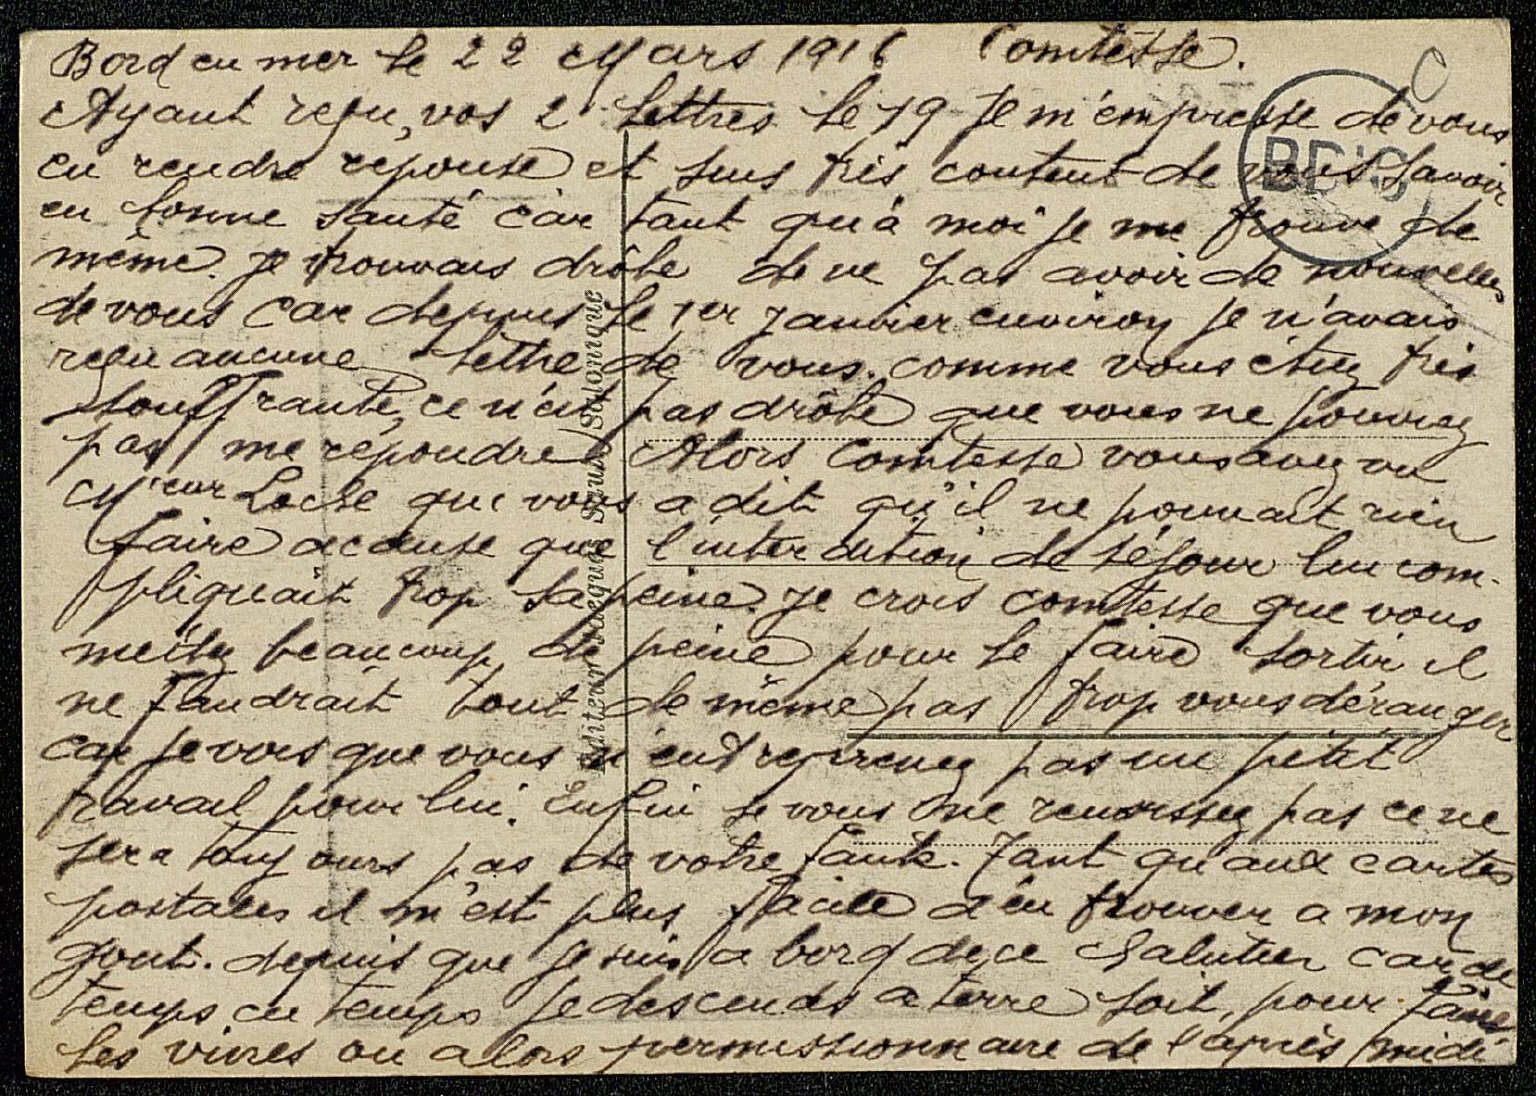 Bord en mer le 22 Mars 1916 Comtesse.
Ayant reçu, vos 2 lettres le 19 Je m'empresse de vous
en rendre reponse et suis très content de vous savoir
en bonne santé car tant qu'à moi je me trouve de
même. je trouvais drôle de ne pas avoir de nouvelles
de vous car depuis le 1er Janvier environ je n'avais
reçu aucune lettre de vous. comme vous étiez très
souffrante, ce n'est pas drôle que vous ne pouviez
pas me répondre. Alors Comtesse vous avez vu
Mr Loche qui vous a dit qu'il ne pouvait rien
faire acause que l'interdition de séjour lui com-
pliquait trop sa peine. Je crois comtesse que vous
meitez beaucoup de peine pour le faire sortir il
ne faudrait tout de même pas trop vous déranger
car je vois que vous n'entreprenez pas un petit
travail pour lui. Enfin si vous ne reussissez pas ce ne
sera toujours pas de votre faute. Tant qu'aux cartes
postales il m'est plus facile d'en trouver a mon
gout. depuis que je suis a bord de ce Chalutier car de
temps en temps je descends a terre soit, pour faire
les vivres ou alors permissionnaire de l'après midi
BDIC
Editeur Jacques Saul, Salonique